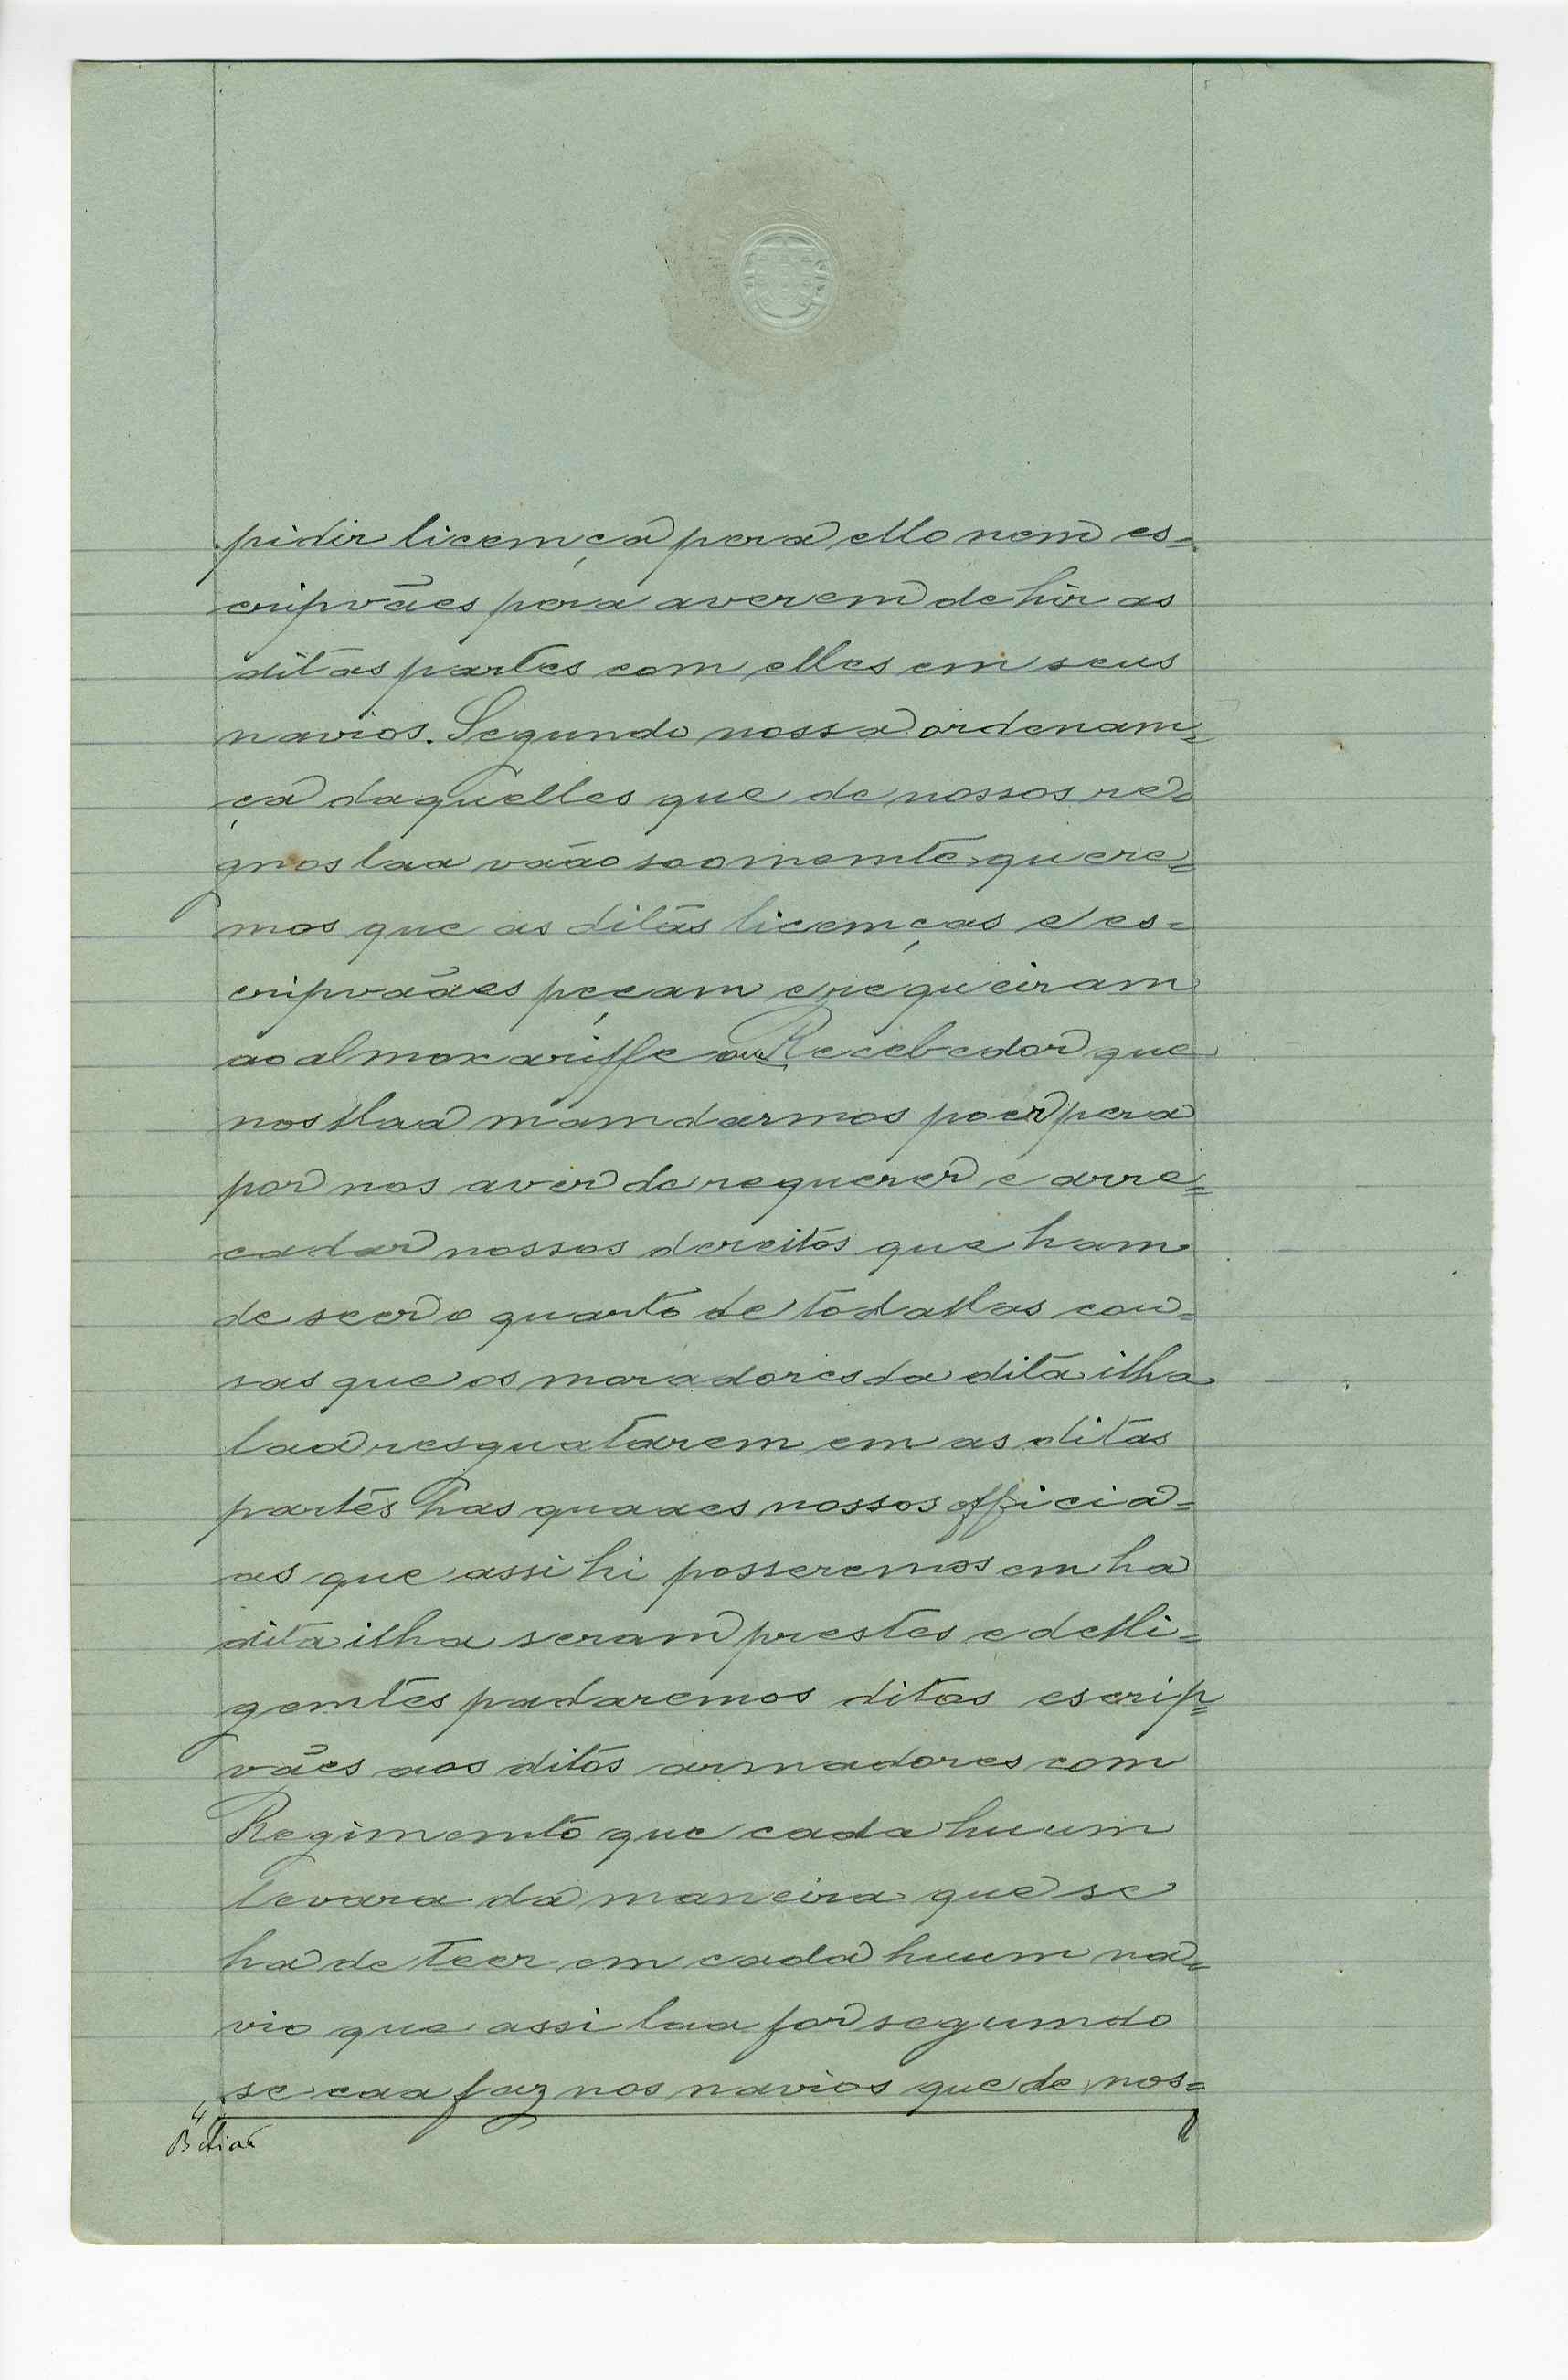 pidir licemça pera ello nem es=
cripvães pera averem de hir as
ditas partes com elles em seus
navios. Segundo nossa ordenam=
ça daquelles que de nossos re=
gnos laa vaão soomemte quere=
mos que as ditas licemças e es=
cripvaães peçam e requeiram
ao almoxariffe ou Recebedor que
nos llaa mamdarmos poer pera
por nos aver de requerer e arre=
cadar nossos dereitos que ham
de seer o quarto de todallas cou=
sas que os moradores da dita ilha
laa resguatarem em as ditas
partes has quaaes nossos officia=
as que assi hi posseremos em ha
dita ilha seram prestes e delli=
gemtes pa daremos ditos escrip=
vães aos ditos armadores com
Regimemto que cada huum
levara da maneira que se
ha de teer em cada huum na=
vio que assi laa for segumdo
se caa faz nos navios que de nos=